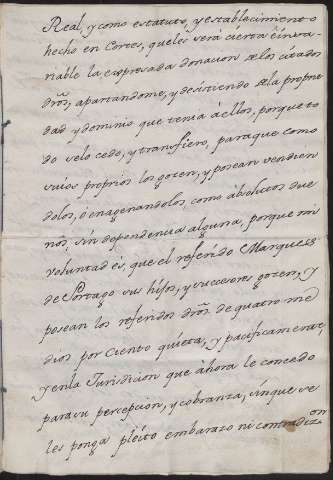 Real, y como estatuto, y establecimiento
hecho en Cortes, queles será cierta é inva-
riable la expresada donacion de los citados
dros̃, apartandome, y desistiendo de la proprie
dad y dominio que tenia á ellos, porque to
do se lo cedo, y transfiero, para que como
suios proprios los gozen, y posean vendien
dolos, ó enagenandolos, como absolutos due
ños, sin dependencia alguna, porque mi
voluntad és, que el referido Marques
de Portago sus hijos, y succesores gozen, y
posean los referidos dros̃ de quatro me
dios por Ciento quieta, y pacificamente,
y en la Jurisdicion que ahora le concedo
para su percepcion, y cobranza, sin que se
les ponga pleito embarazo ni contradiz.on